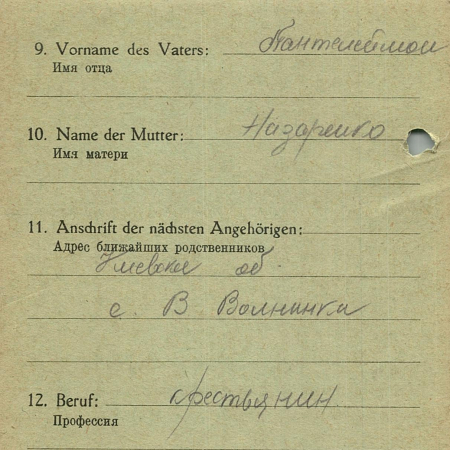 9. Vorname des Vaters: Пантелеймон
Имя отца
10. Name der Mutter: Назаренко
Имя матери
11. Anschrift der nächsten Angehörigen:
Адрес ближайших родственников
Киевская об.
с. В
12. Beruf: крестьянин
Профессия